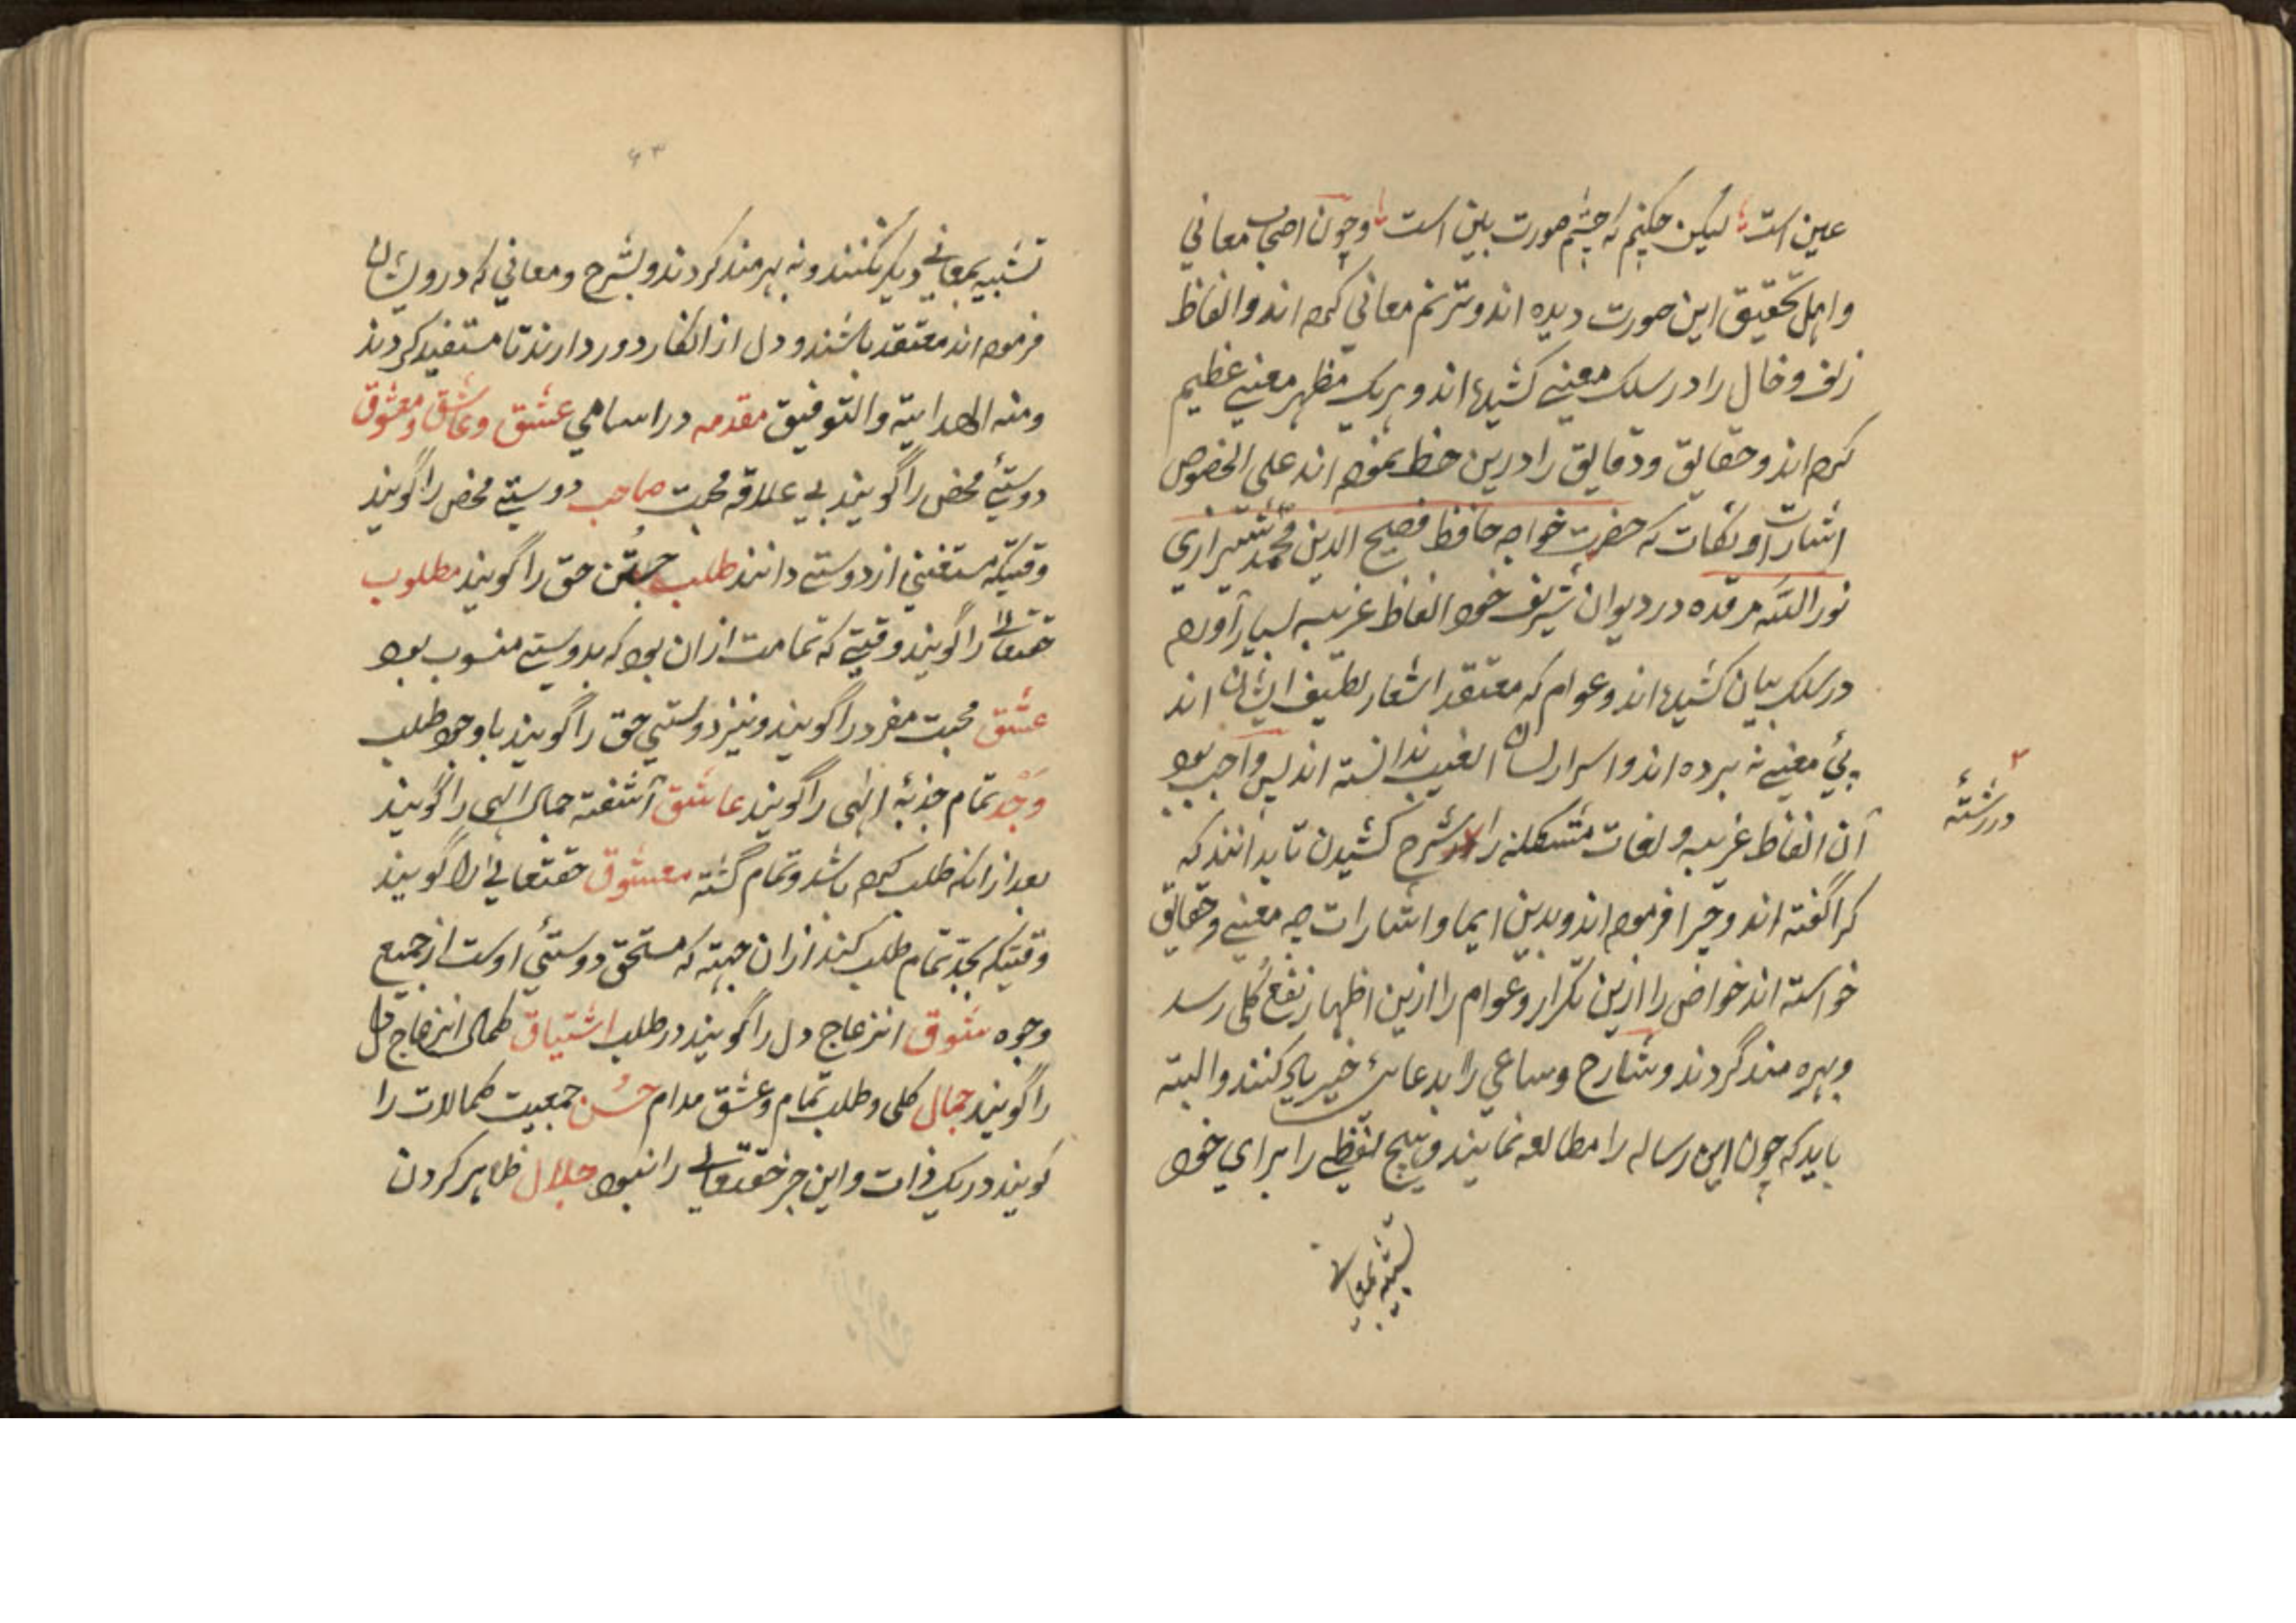 عین است لیکن چکنم که چشم صورت بین است وچون اصحاب معاني
واهل تحقیق این صورت دیده اند وترنم معاني کرده اند والفاظ
زلف وخال را در سلک معنیے کشیده اند و هر یک مظهر معنیے عظیم
کرده اند وحقایق ودقایق را درین خط نموده اند علی الخصوص
اشارات ونکات که حضرت خواجه حافظ فصیح الدین محمد شیرازي
نور الله مرقده در دیوان شریف خود الفاظ غریبه بسیار آورده
در سلک بیان کشیده اند وعوام که معتقد اشعار لطیف ایشان اند
پئ معنیے نه برده اند واسرار لسان الغیب ندانسته اند پس واجب بود
آن الفاظ غریبه ولغات مشکله را شرح کشیدن تا بدانند که
در رشتهٔ
کرا گفته اند وچرا فرموده اند وبدین ایما واشارات چه معنیے وحقایق
خواسته اند خواص را ازین تکرار وعوام را ازین اظهار نفع کلی رسد
وبهره مند گردند وشارح وساعي را بدعاے خیر یاد کنند والبته
باید که چون این رساله را مطالعه نمایند وهیچ لفظے را براي خود
تشبیه بمعانے
۶۳
تشبیه بمعانے دیگر نکنند ونه بهرمند کردند وبشرح ومعاني که درویشان
فرموده اند معتقد باشند ودل از انکار دور دارند تا مستفید کردند
ومنه الهدایة والتوفیق مقدمه در اسامي عشق وعاشق ومعشوق
دوستئ محض را گویند بے علاقه محبت صاحب دوستے محض را گویند
وقتیکه مستغني از دوستے دانند طلب جستن حق را گویند مطلوب
حقتعالے را گویند وقتیے که تمامت ازان بود که بدوستے منسوب بود
عشق محبت مفرد را گویند ونیز دوستي حق را گویند با وجود طلب
وجد تمام جذبهٔ الهی را گویند عاشق آشفته جمال الهی را گویند
بعد از انکه طلب کرده باشد وتمام گشته معشوق حقتعالي را گویند
وقتیکه بجد تمام طلب کنند ازان جهته که مستحق دوستئ اوست از جمیع
وجوه شوق انزعاج دل را گویند در طلب اشتیاق کمال انزعاج دل
را گویند جمال کلی وطلب تمام وعشق مدام حسن جمعیت کمالات را
گویند در یک ذات واین جز حقتعالے را نبود جلال ظاهر کردن